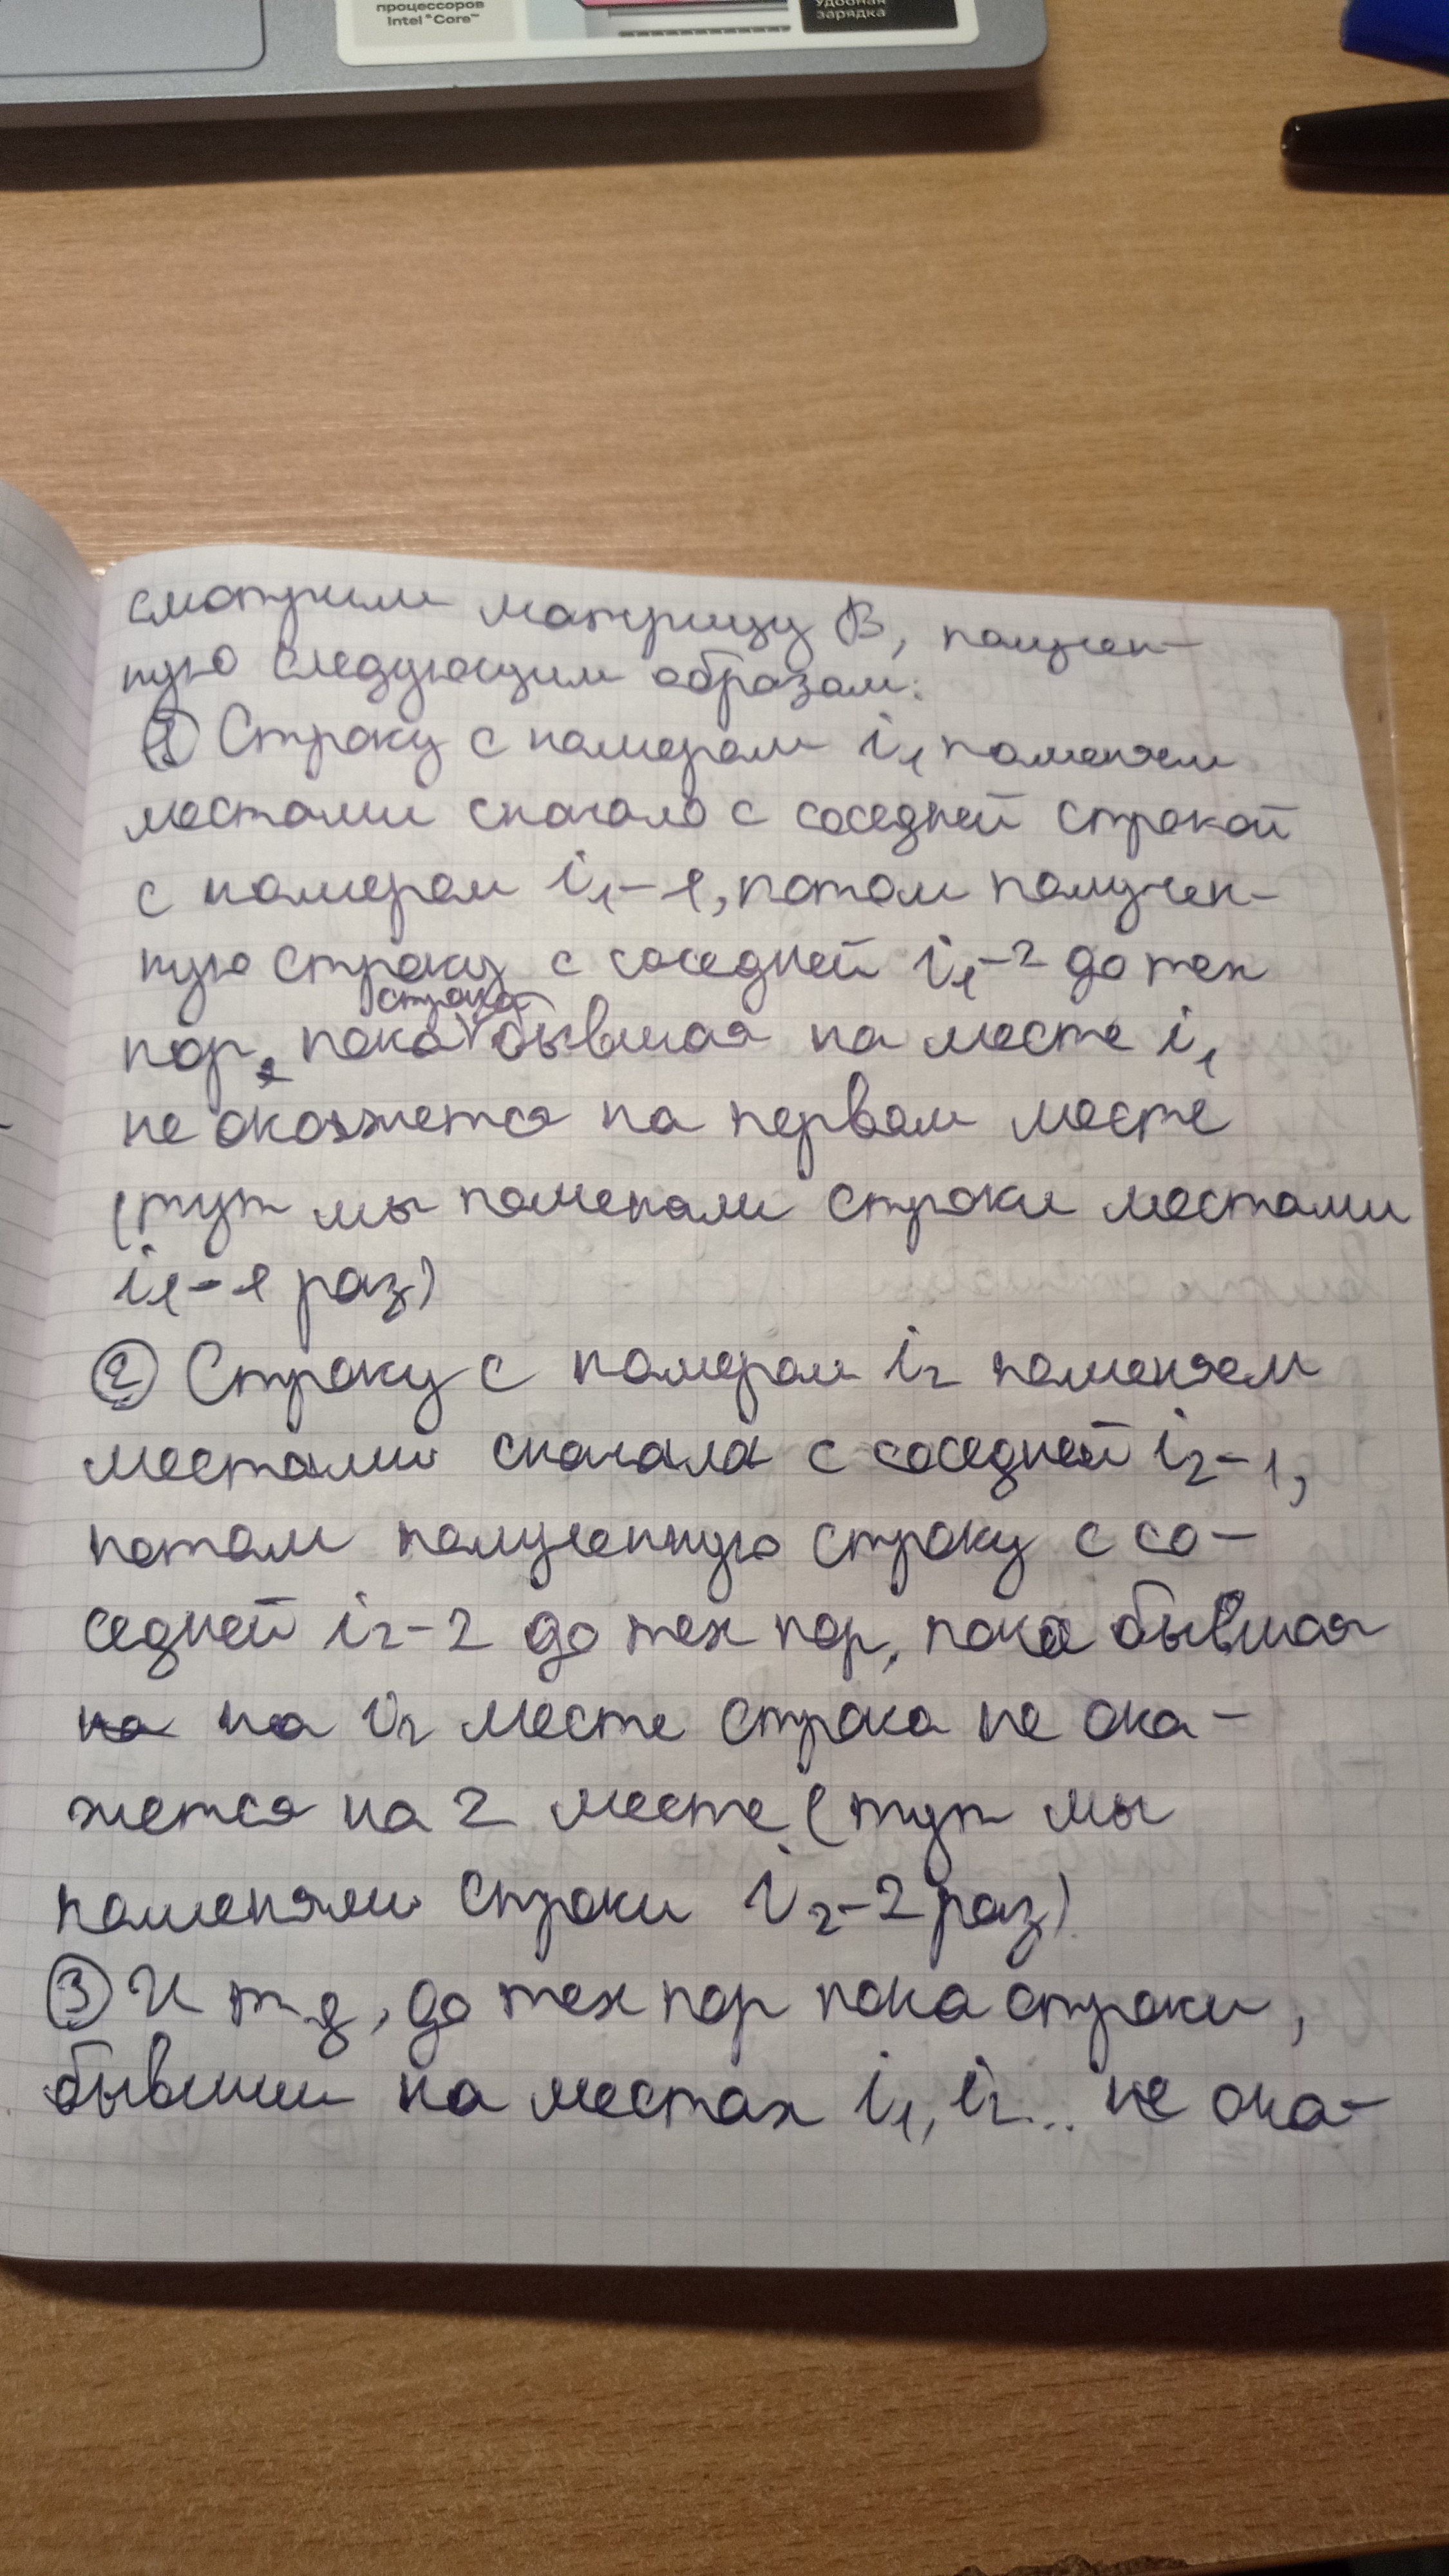 процессоров
Intel® Core™
Удобная
зарядка
смотрим матрицу B, получен-
ную следующим образом:
① Строку с номером i₁ поменяем
местами сначало с соседней строкой
с номером i₁-1, потом получен-
ную строку с соседней i₁-2 до тех
строка
пор, пока бывшая на месте i₁
не окажется на первом месте
(тут мы поменали строки местами
i₁-1 раз)
② Строку с номером i₂ поменяем
местами сначала с соседней i₂-1,
потом полученную строку с со-
седней i₂-2 до тех пор, пока бывшая
на на i₂ месте строка не ока-
жется на 2 месте (тут мы
поменяли строки i₂-2 раз)
③ И т д, до тех пор пока строки,
бывшие на местах i₁, i₂... не ока-